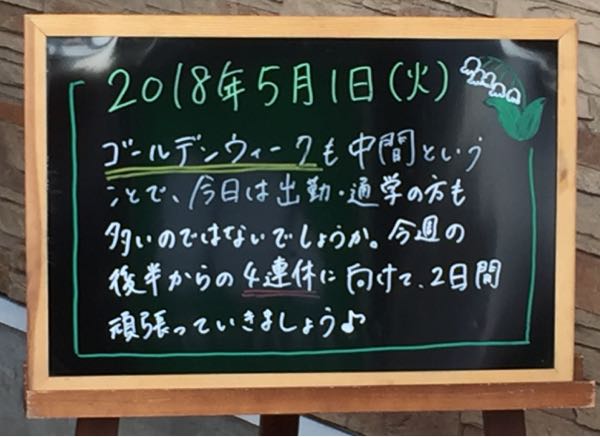 2018年5月1日(火)
ゴールデンウィークも中間という
ことで、今日は出勤・通学の方も
多いのではないでしょうか。今週の
後半からの4連休に向けて、2日間
頑張っていきましょう♪